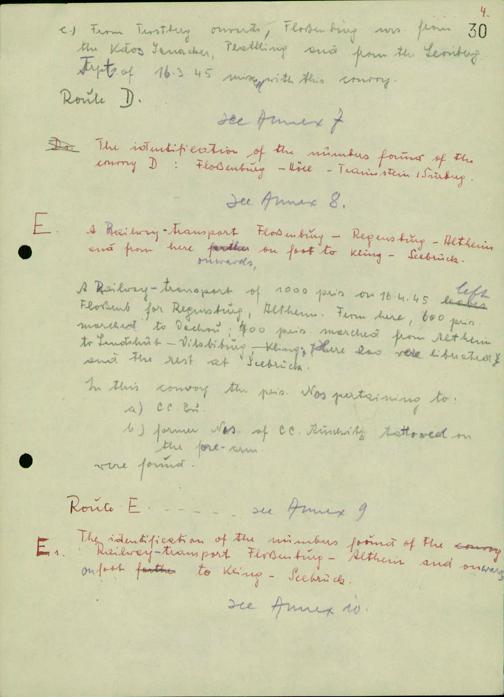 4.
30
c.) From Trostberg onwards, Floßenburg prs. from
the Kdos Ganacker, Plattling and from the Leonberg
Trpt. of 16.3.45 mixed with this convoy.
Route D.
see Annex 7
The identification of the numbers found of the
convoy D : Floßenburg - - Traunstein / Surberg.
see Annex 8.
E.
A Railway-transport Floßenburg - Regensburg - Altheim
and from here further on foot to Kling - Seebruck.
onwards,
A Railway-transport of 1000 pris on 16.4.45 leaves left
Floßenb for Regensburg, Altheim. From here, 600 pris.
marched to Dachau; 400 pris. marched from Altheim
to Landshut - Vilsbiburg - Kling; where 200 were liberated
and the rest at Seebruck.
In this convoy the pris. Nos pertaining to:
a) CC. Bu.
b) former Nos. of CC. Auschwitz tattowed on
the fore-arm
were found.
Route E - - - - - see Annex 9
E1.
The identification of the numbers found of the convoy
Railway-transport Floßenburg - Altheim and onwards
on foot further to Kling - Seebruck.
see Annex 10.